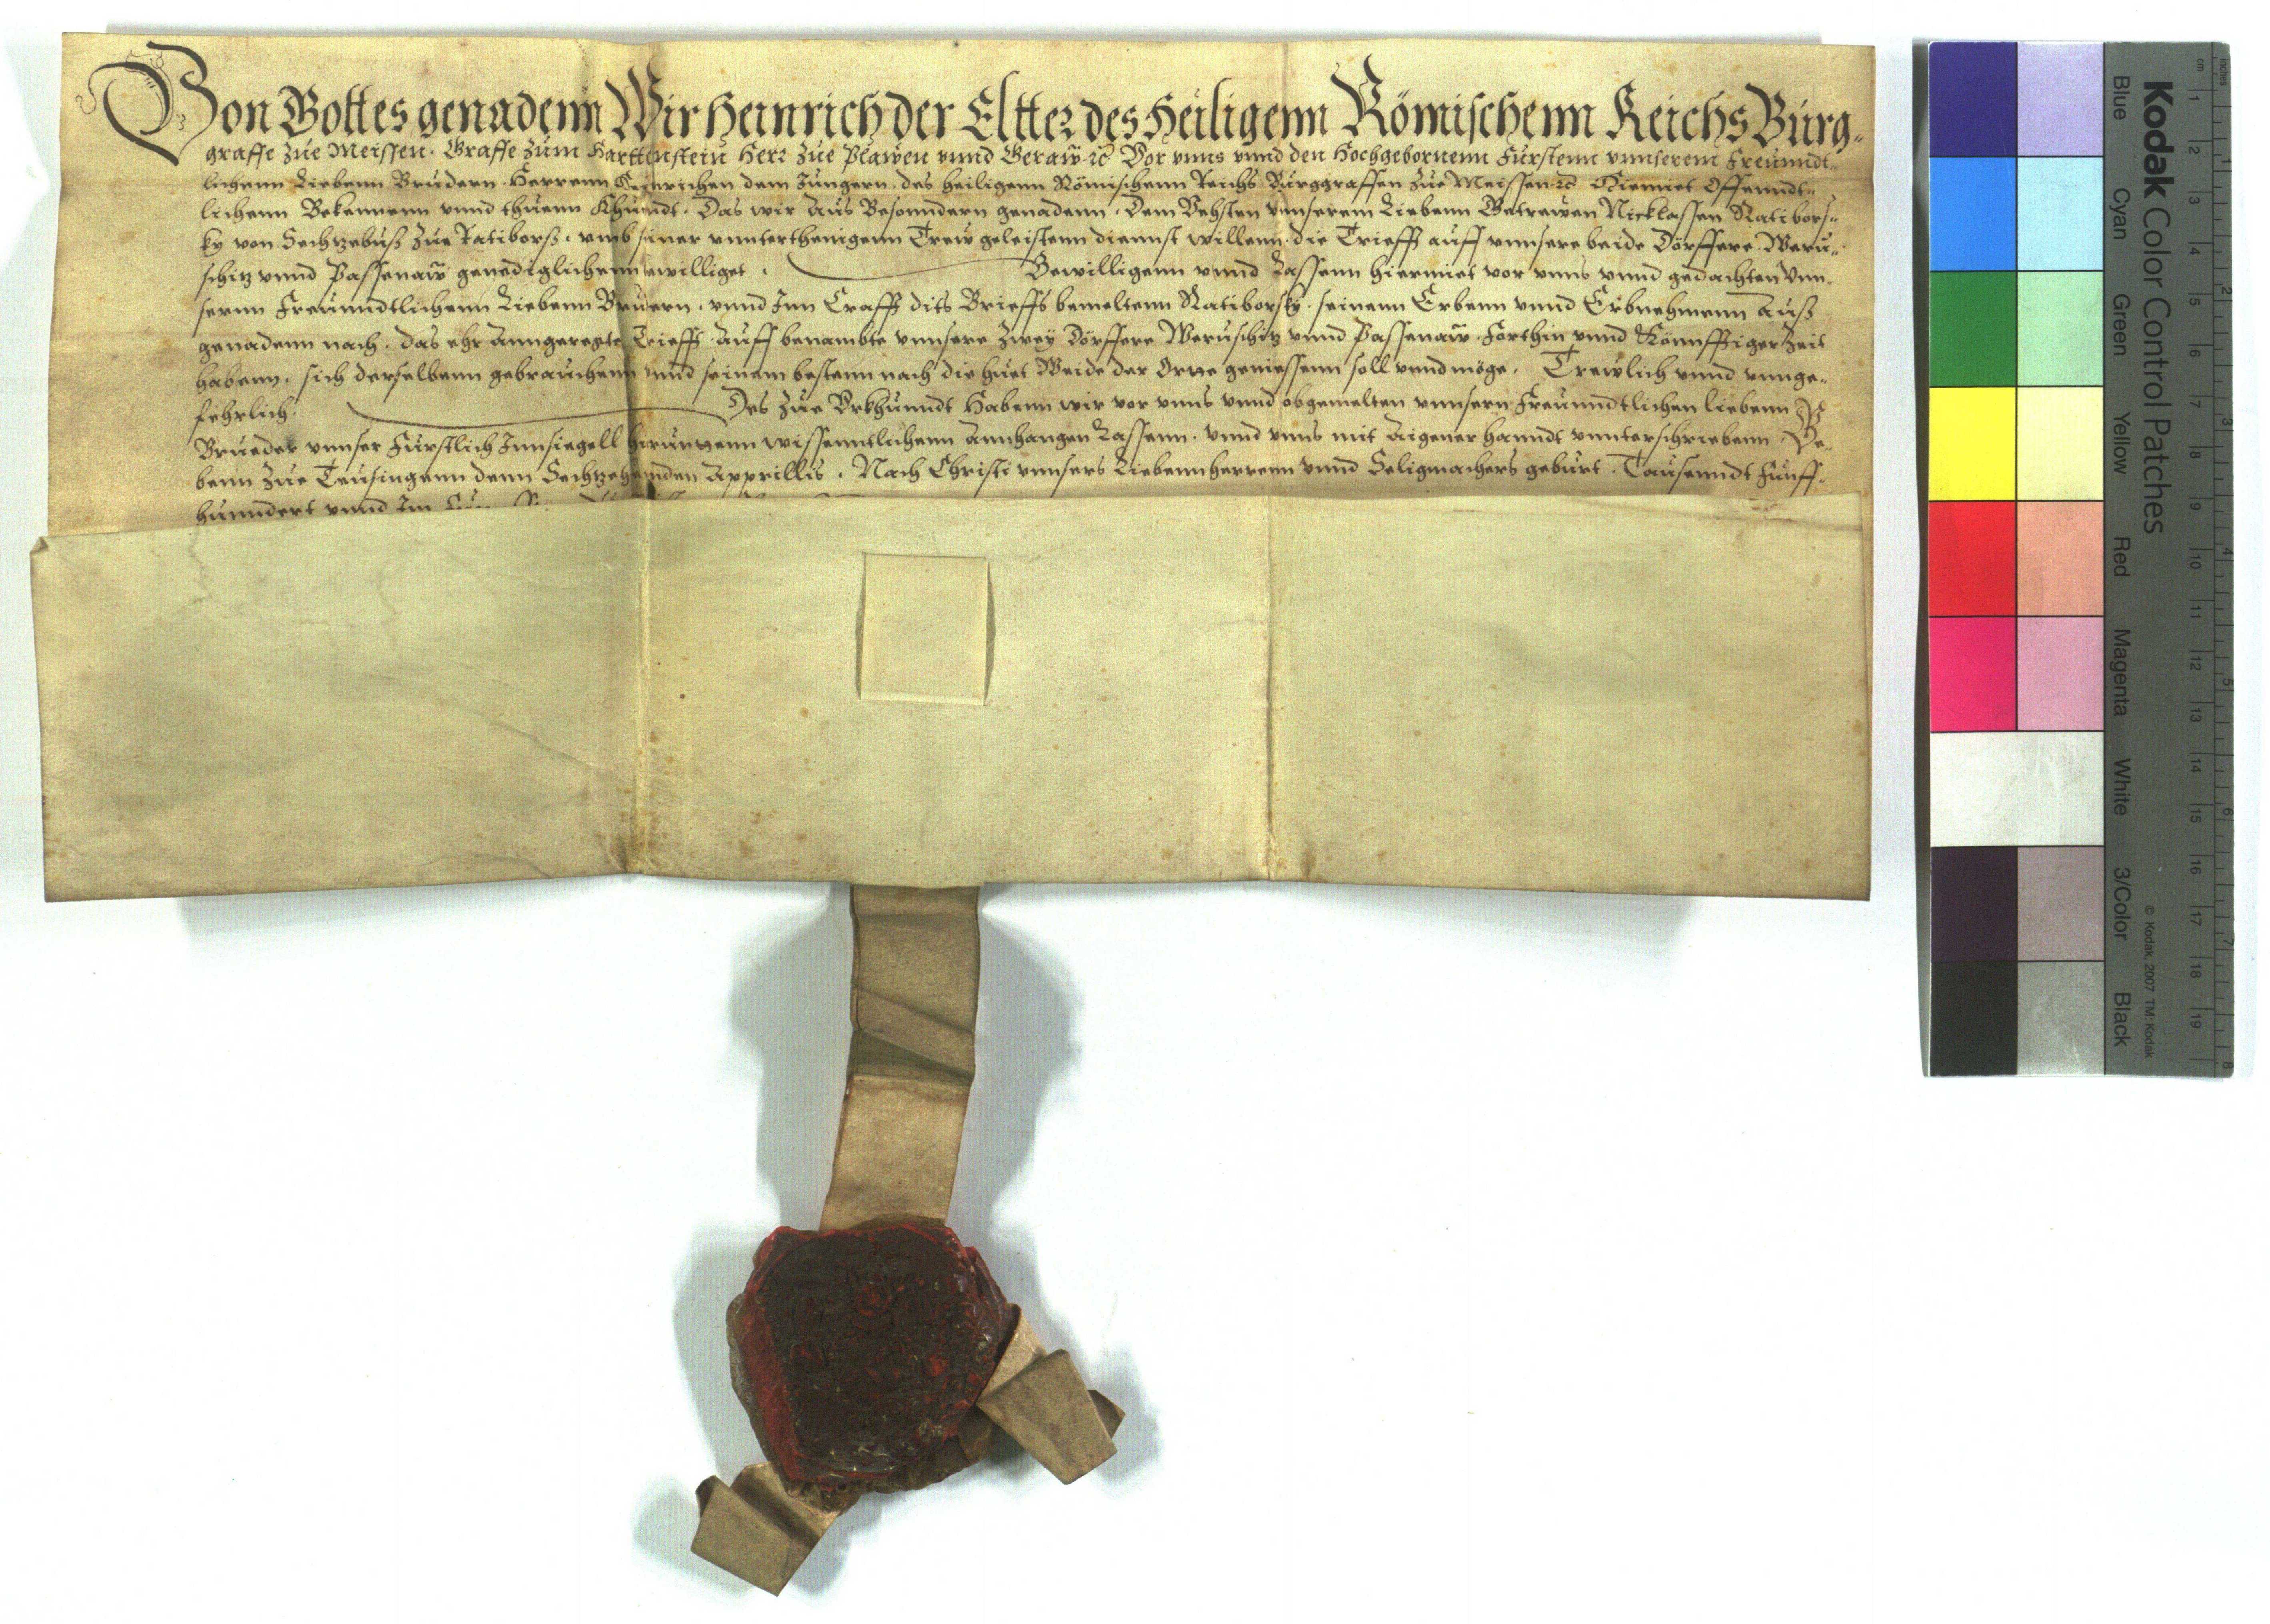 Von Gottes genadenn Wir Heinrich der Eltter des Heiligenn Römischenn Reichs Burg-
graffe zue Meissen. Graffe zum Harttenstein Herr zue Plawen vnnd Geraw ꝛc Vor vnns vnnd den Hochgebornenn Furstenn vnnserem Freunndt-
lichenn Liebenn Brudern. Herrenn Heinrichen dem Jungern. des heiligenn Römischenn Reichs Burggraffen zue Meissen ꝛc Hiemiet Offenndt-
lichenn Bekennenn vnnd thuenn Khundt. Das wir Aus Besonndern genadenn. Dem Vehsten vnnserem Liebenn Getrewen Nicklassen Ratibors-
ky von Sechtzebuß zue Ratiborß. vmb seiner vnnterthenigenn Trew geleistenn diennst willenn. die Triefft auff vnnsere beide Dörffere. Weru-
schitz vnnd Passenaw genediglichenn bewilliget. Bewilligenn vnnd Lassenn hiermiet vor vnns vnnd gedachten Vnn-
serm Freunndtlichenn Liebenn Bruedern. vnnd Inn Crafft dits Brieffs bemeltenn Ratiborsky. seinenn Erbenn vnnd Erbnehmenn Auß
genadenn nach. das ehr Anngeregte Triefft. Auff benambte vnnsere zwey Dörffere Weruschitz vnnd Passenaw. Forthin vnnd Könnfftiger Zeit
habenn. sich derselbenn gebrauchenn vnnd seinem bestenn nach die huet Weide der Ortte geniessenn soll vnnd möge. Trewlich vnnd vnnge-
fehrlich. Des zue Vrkhunndt Habenn wir vor vnns vnnd obgemelten vnnsern Freunndtlichen liebenn
Brueder vnnser Furstlich Innsiegell hirunttenn wissenntlichenn Annhangen Lassenn. vnnd vnns mit Aigener hanndt vnnterschriebenn. Ge-
benn zue Teusingenn denn Sechtzehennden Apprillis. Nach Christi vnnsers Liebenn herrenn vnnd Seligmachers geburt. Tausenndt Funff-
hunndert vnnd Im
Kodak Color Control Patches
Blue Cyan Green Yellow Red Magenta White 3/Color Black
© Kodak, 2007 TM: Kodak
cm 1 2 3 4 5 6 7 8 9 10 11 12 13 14 15 16 17 18 19
inches 1 2 3 4 5 6 7 8